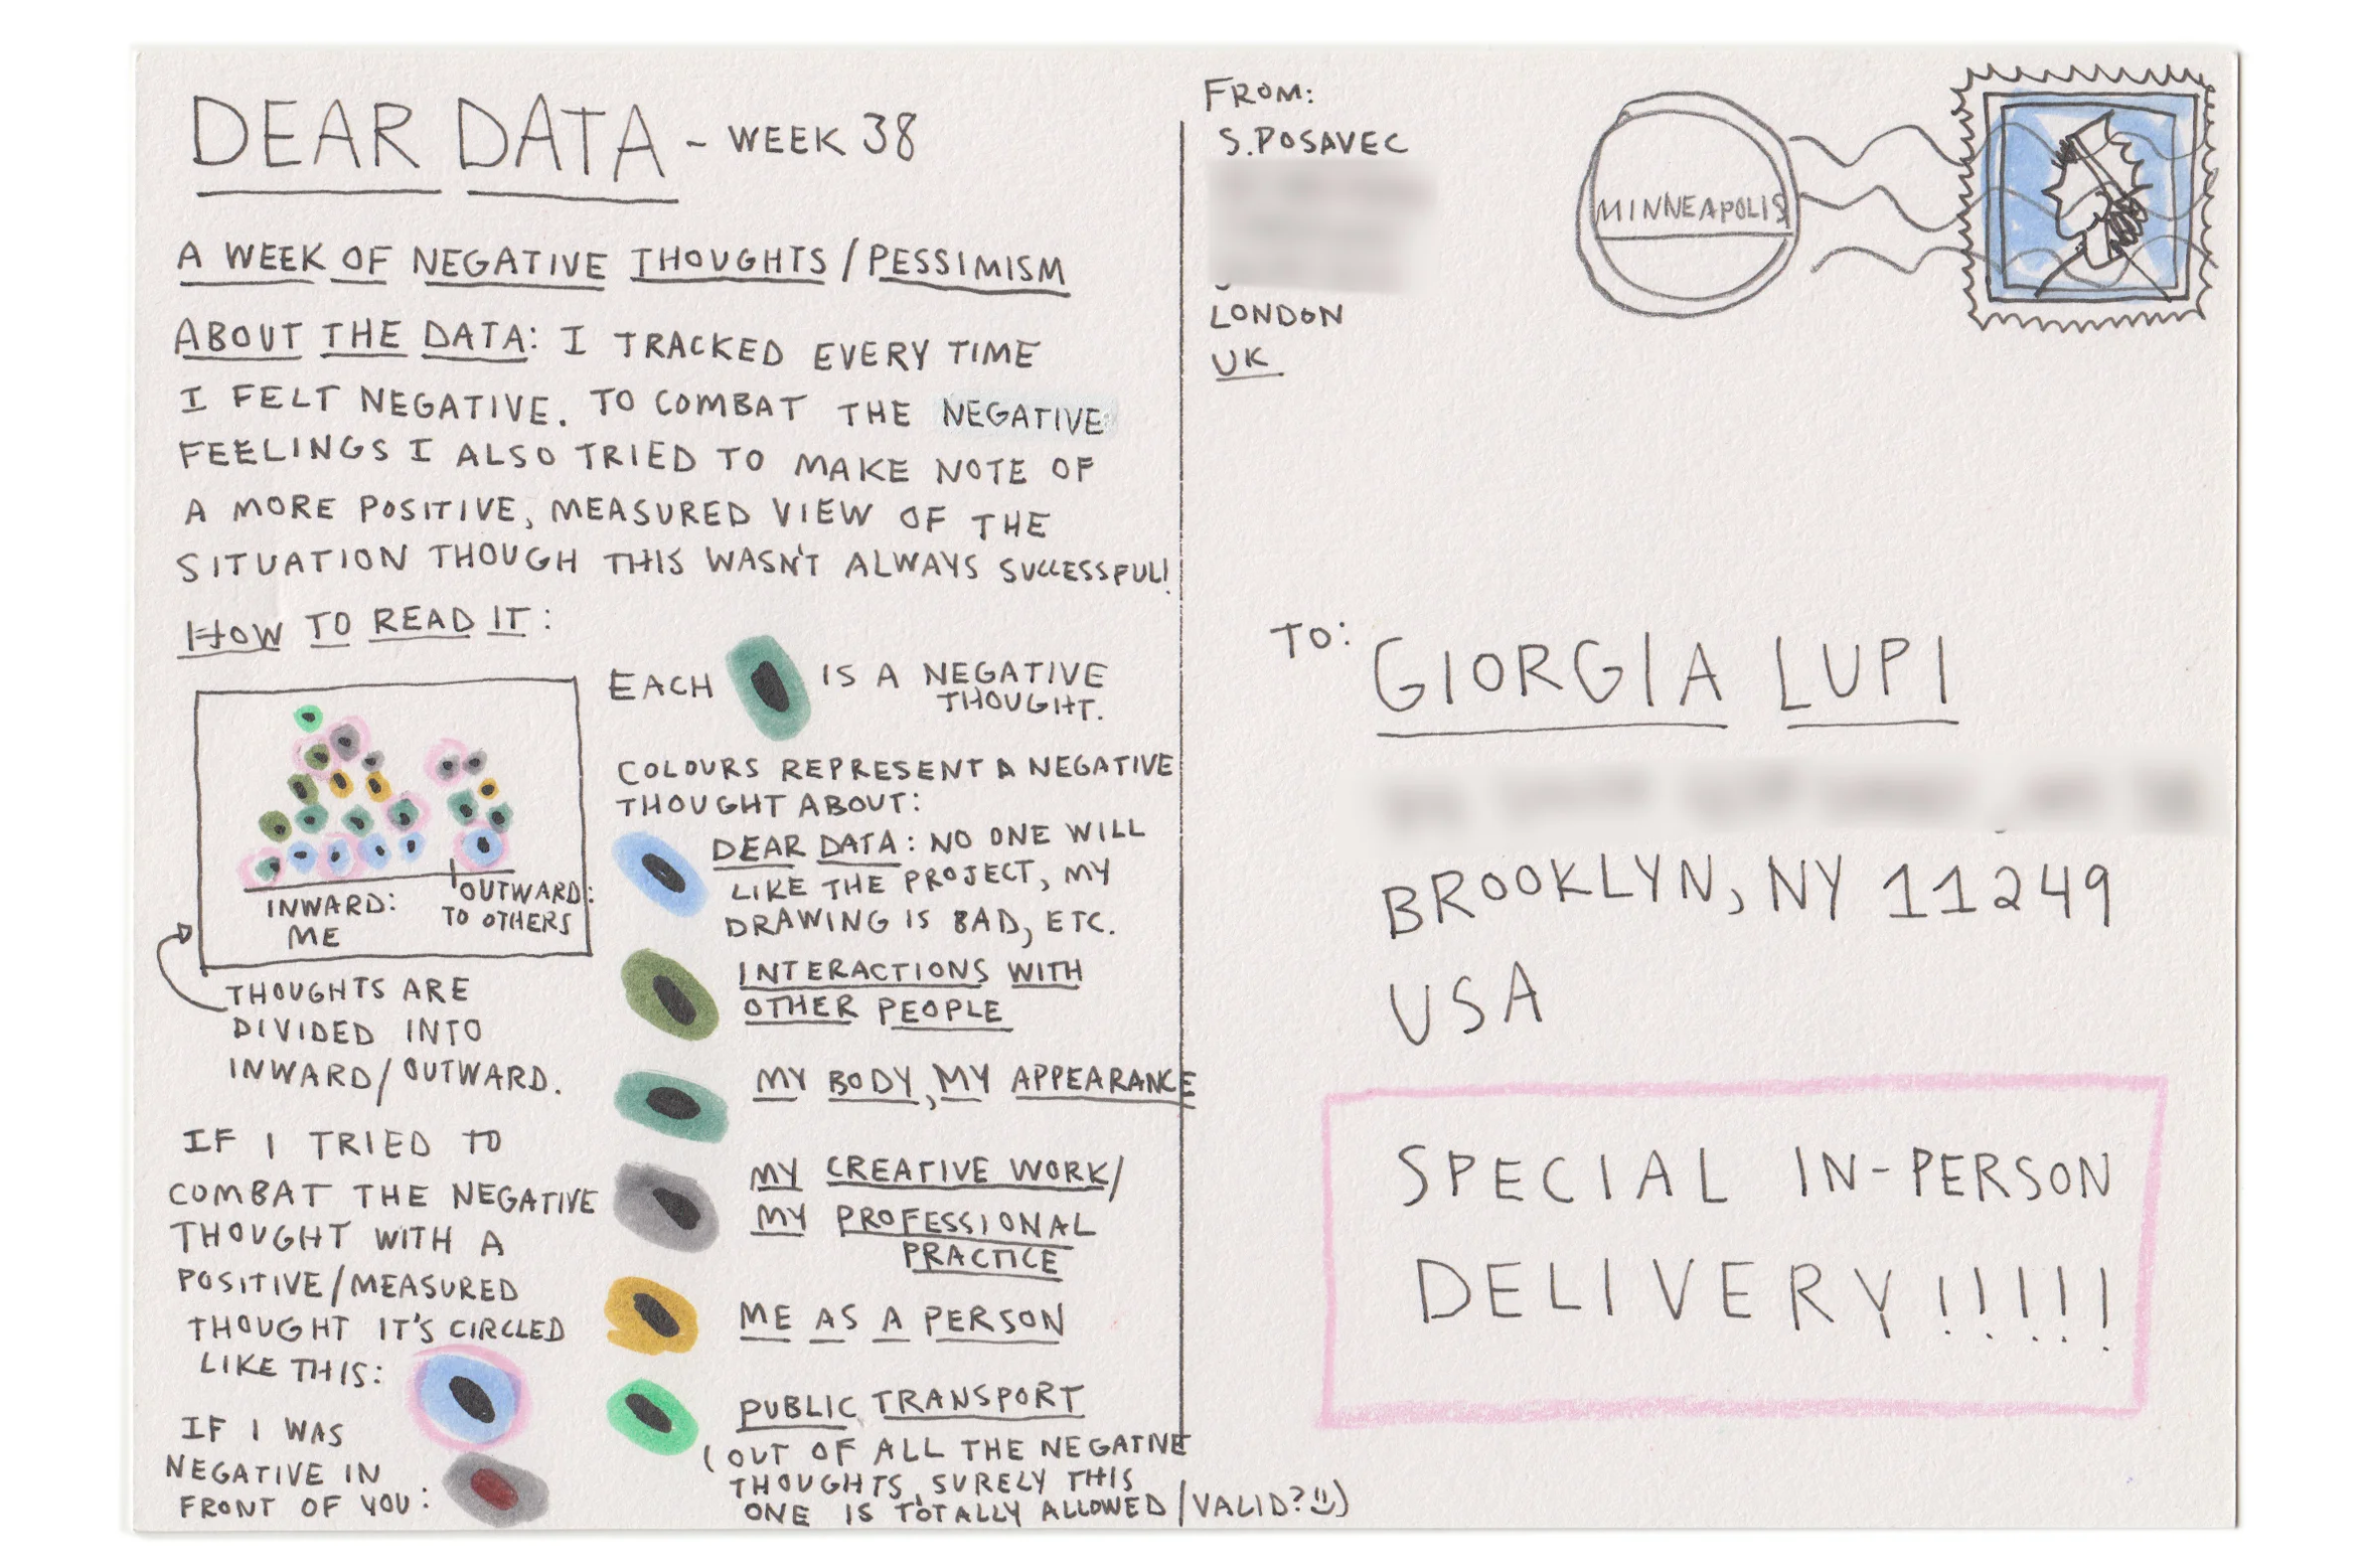 DEAR DATA - WEEK 38
A WEEK OF NEGATIVE THOUGHTS / PESSIMISM
ABOUT THE DATA: I TRACKED EVERY TIME
I FELT NEGATIVE. TO COMBAT THE NEGATIVE
FEELINGS I ALSO TRIED TO MAKE NOTE OF
A MORE POSITIVE, MEASURED VIEW OF THE
SITUATION THOUGH THIS WASN'T ALWAYS SUCCESSFUL!
HOW TO READ IT:
INWARD:
ME
OUTWARD:
TO OTHERS
THOUGHTS ARE
DIVIDED INTO
INWARD/OUTWARD.
IF I TRIED TO
COMBAT THE NEGATIVE
THOUGHT WITH A
POSITIVE/MEASURED
THOUGHT IT'S CIRCLED
LIKE THIS:
IF I WAS
NEGATIVE IN
FRONT OF YOU:
EACH IS A NEGATIVE
THOUGHT.
COLOURS REPRESENT A NEGATIVE
THOUGHT ABOUT:
DEAR DATA: NO ONE WILL
LIKE THE PROJECT, MY
DRAWING IS BAD, ETC.
INTERACTIONS WITH
OTHER PEOPLE
MY BODY, MY APPEARANCE
MY CREATIVE WORK/
MY PROFESSIONAL
PRACTICE
ME AS A PERSON
PUBLIC TRANSPORT
(OUT OF ALL THE NEGATIVE
THOUGHTS, SURELY THIS
ONE IS TOTALLY ALLOWED/VALID? )
FROM:
S.POSAVEC
LONDON
UK
MINNEAPOLIS
TO: GIORGIA LUPI
BROOKLYN, NY 11249
USA
SPECIAL IN-PERSON
DELIVERY!!!!!